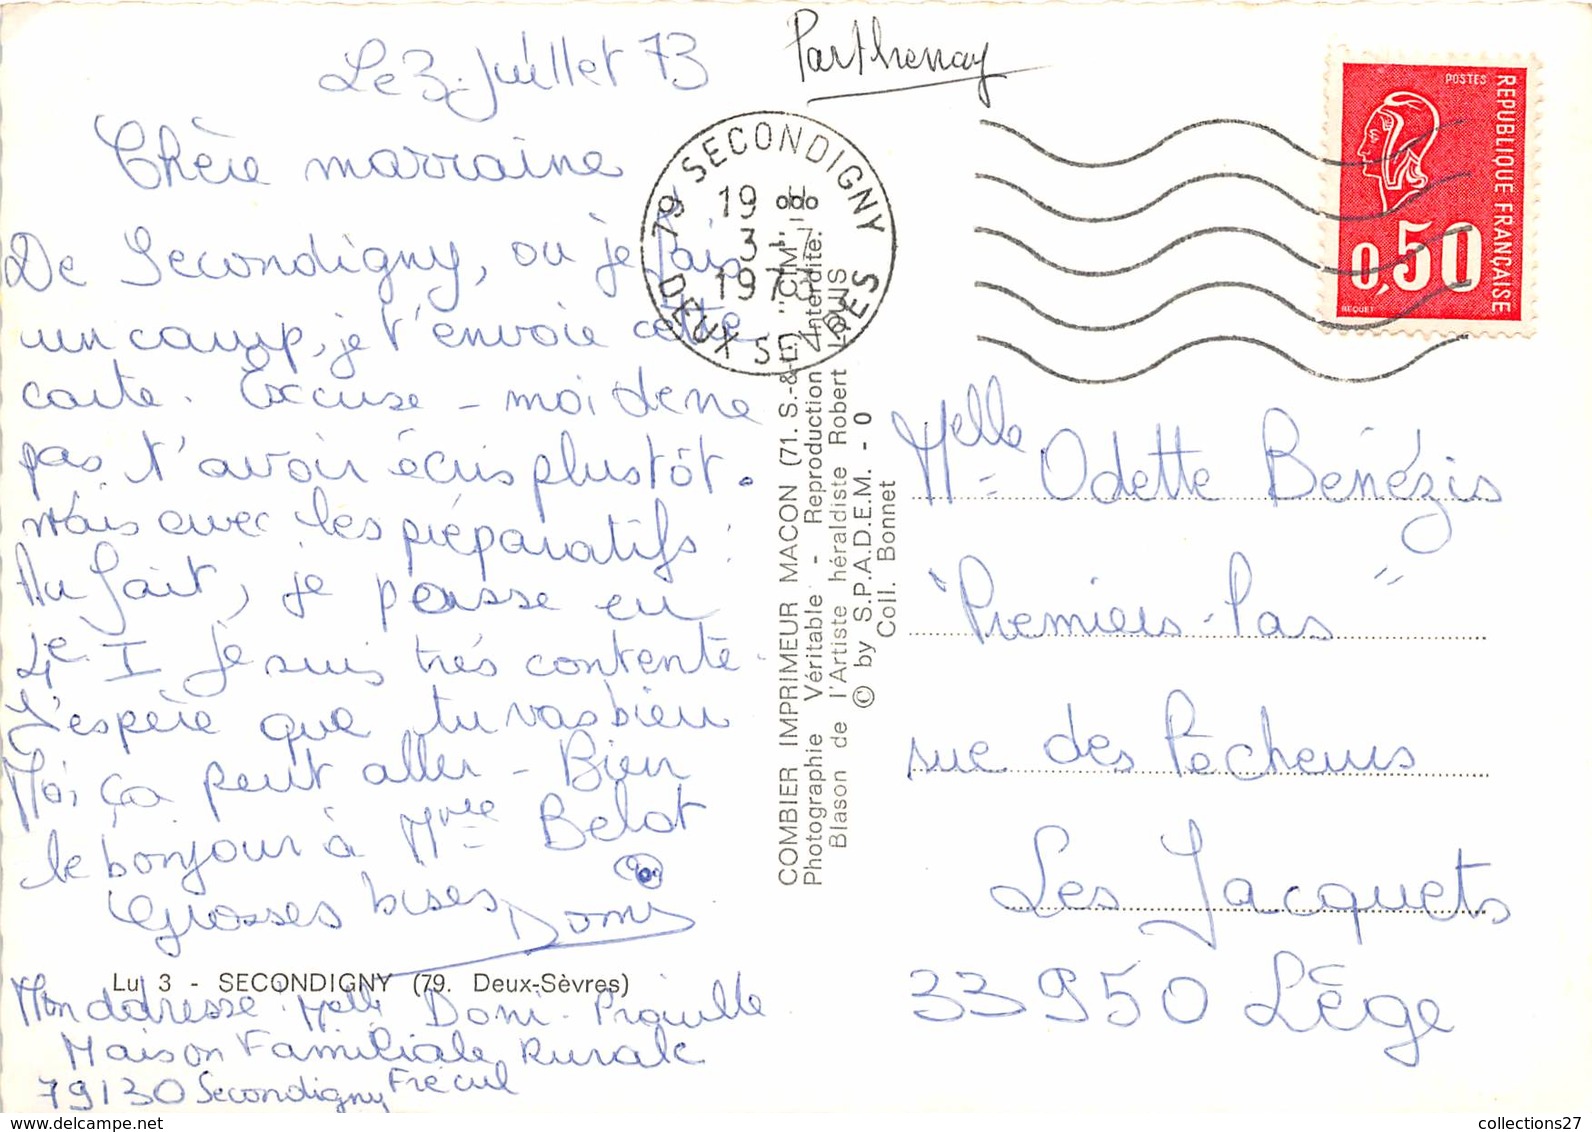 Le 3 Juillet 73
Parthenay
Chère marraine
De Secondigny, ou je fais
un camp, je t'envoie cette
carte. Excuse-moi de ne
pas t'avoir écris plustôt.
Mais avec les préparatifs :
Au fait, je passe en
4e I je suis très contente.
J'espère que tu vas bien
Moi ça peut aller - Bien
le bonjour à Mme Belot
Grosses bises
Domi
Lu 3 - SECONDIGNY (79. Deux-Sèvres)
Mon adresse : Melle Domi
Maison Familiale Rurale
79130 Secondigny
79 SECONDIGNY
19 H
3 - 7
1973
DEUX SEVRES
COMBIER IMPRIMEUR MACON (71. S.-&-L.) "CIM"
Photographie Véritable - Reproduction Interdite.
Blason de l'Artiste héraldiste Robert LOUIS
© by S.P.A.D.E.M. - 0
Coll. Bonnet
POSTES
REPUBLIQUE FRANÇAISE
0,50
BEQUET
Melle Odette Bénézis
"Premiers-Pas"
rue des Pêcheurs
Les Jacquets
33950 Lège
collections27